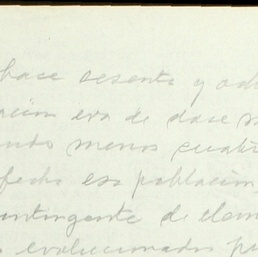 hace sesenta y och
ación era de doce m
ndo menos cuatr
fecha esa población,
contingente de elem
s evolucionados pu